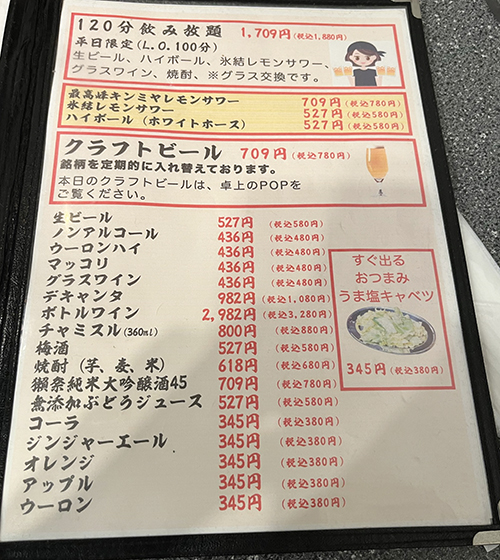 120分飲み放題 1,709円(税込1,880円)
平日限定(L.O.100分)
生ビール、ハイボール、氷結レモンサワー、
グラスワイン、焼酎、※グラス交換です。
最高峰キンミヤレモンサワー 709円(税込780円)
氷結レモンサワー 527円(税込580円)
ハイボール(ホワイトホース) 527円(税込580円)
クラフトビール 709円(税込780円)
銘柄を定期的に入れ替えております。
本日のクラフトビールは、卓上のPOPを
ご覧ください。
生ビール 527円 (税込580円)
ノンアルコール 436円 (税込480円)
ウーロンハイ 436円 (税込480円)
マッコリ 436円 (税込480円)
グラスワイン 436円 (税込480円)
デキャンタ 982円 (税込1,080円)
ボトルワイン 2,982円 (税込3,280円)
チャミスル(360ml) 800円 (税込880円)
梅酒 527円 (税込580円)
焼酎(芋、麦、米) 618円 (税込680円)
獺祭純米大吟醸酒45 709円 (税込780円)
無添加ぶどうジュース 527円 (税込580円)
コーラ 345円 (税込380円)
ジンジャーエール 345円 (税込380円)
オレンジ 345円 (税込380円)
アップル 345円 (税込380円)
ウーロン 345円 (税込380円)
すぐ出る
おつまみ
うま塩キャベツ
345円(税込380円)